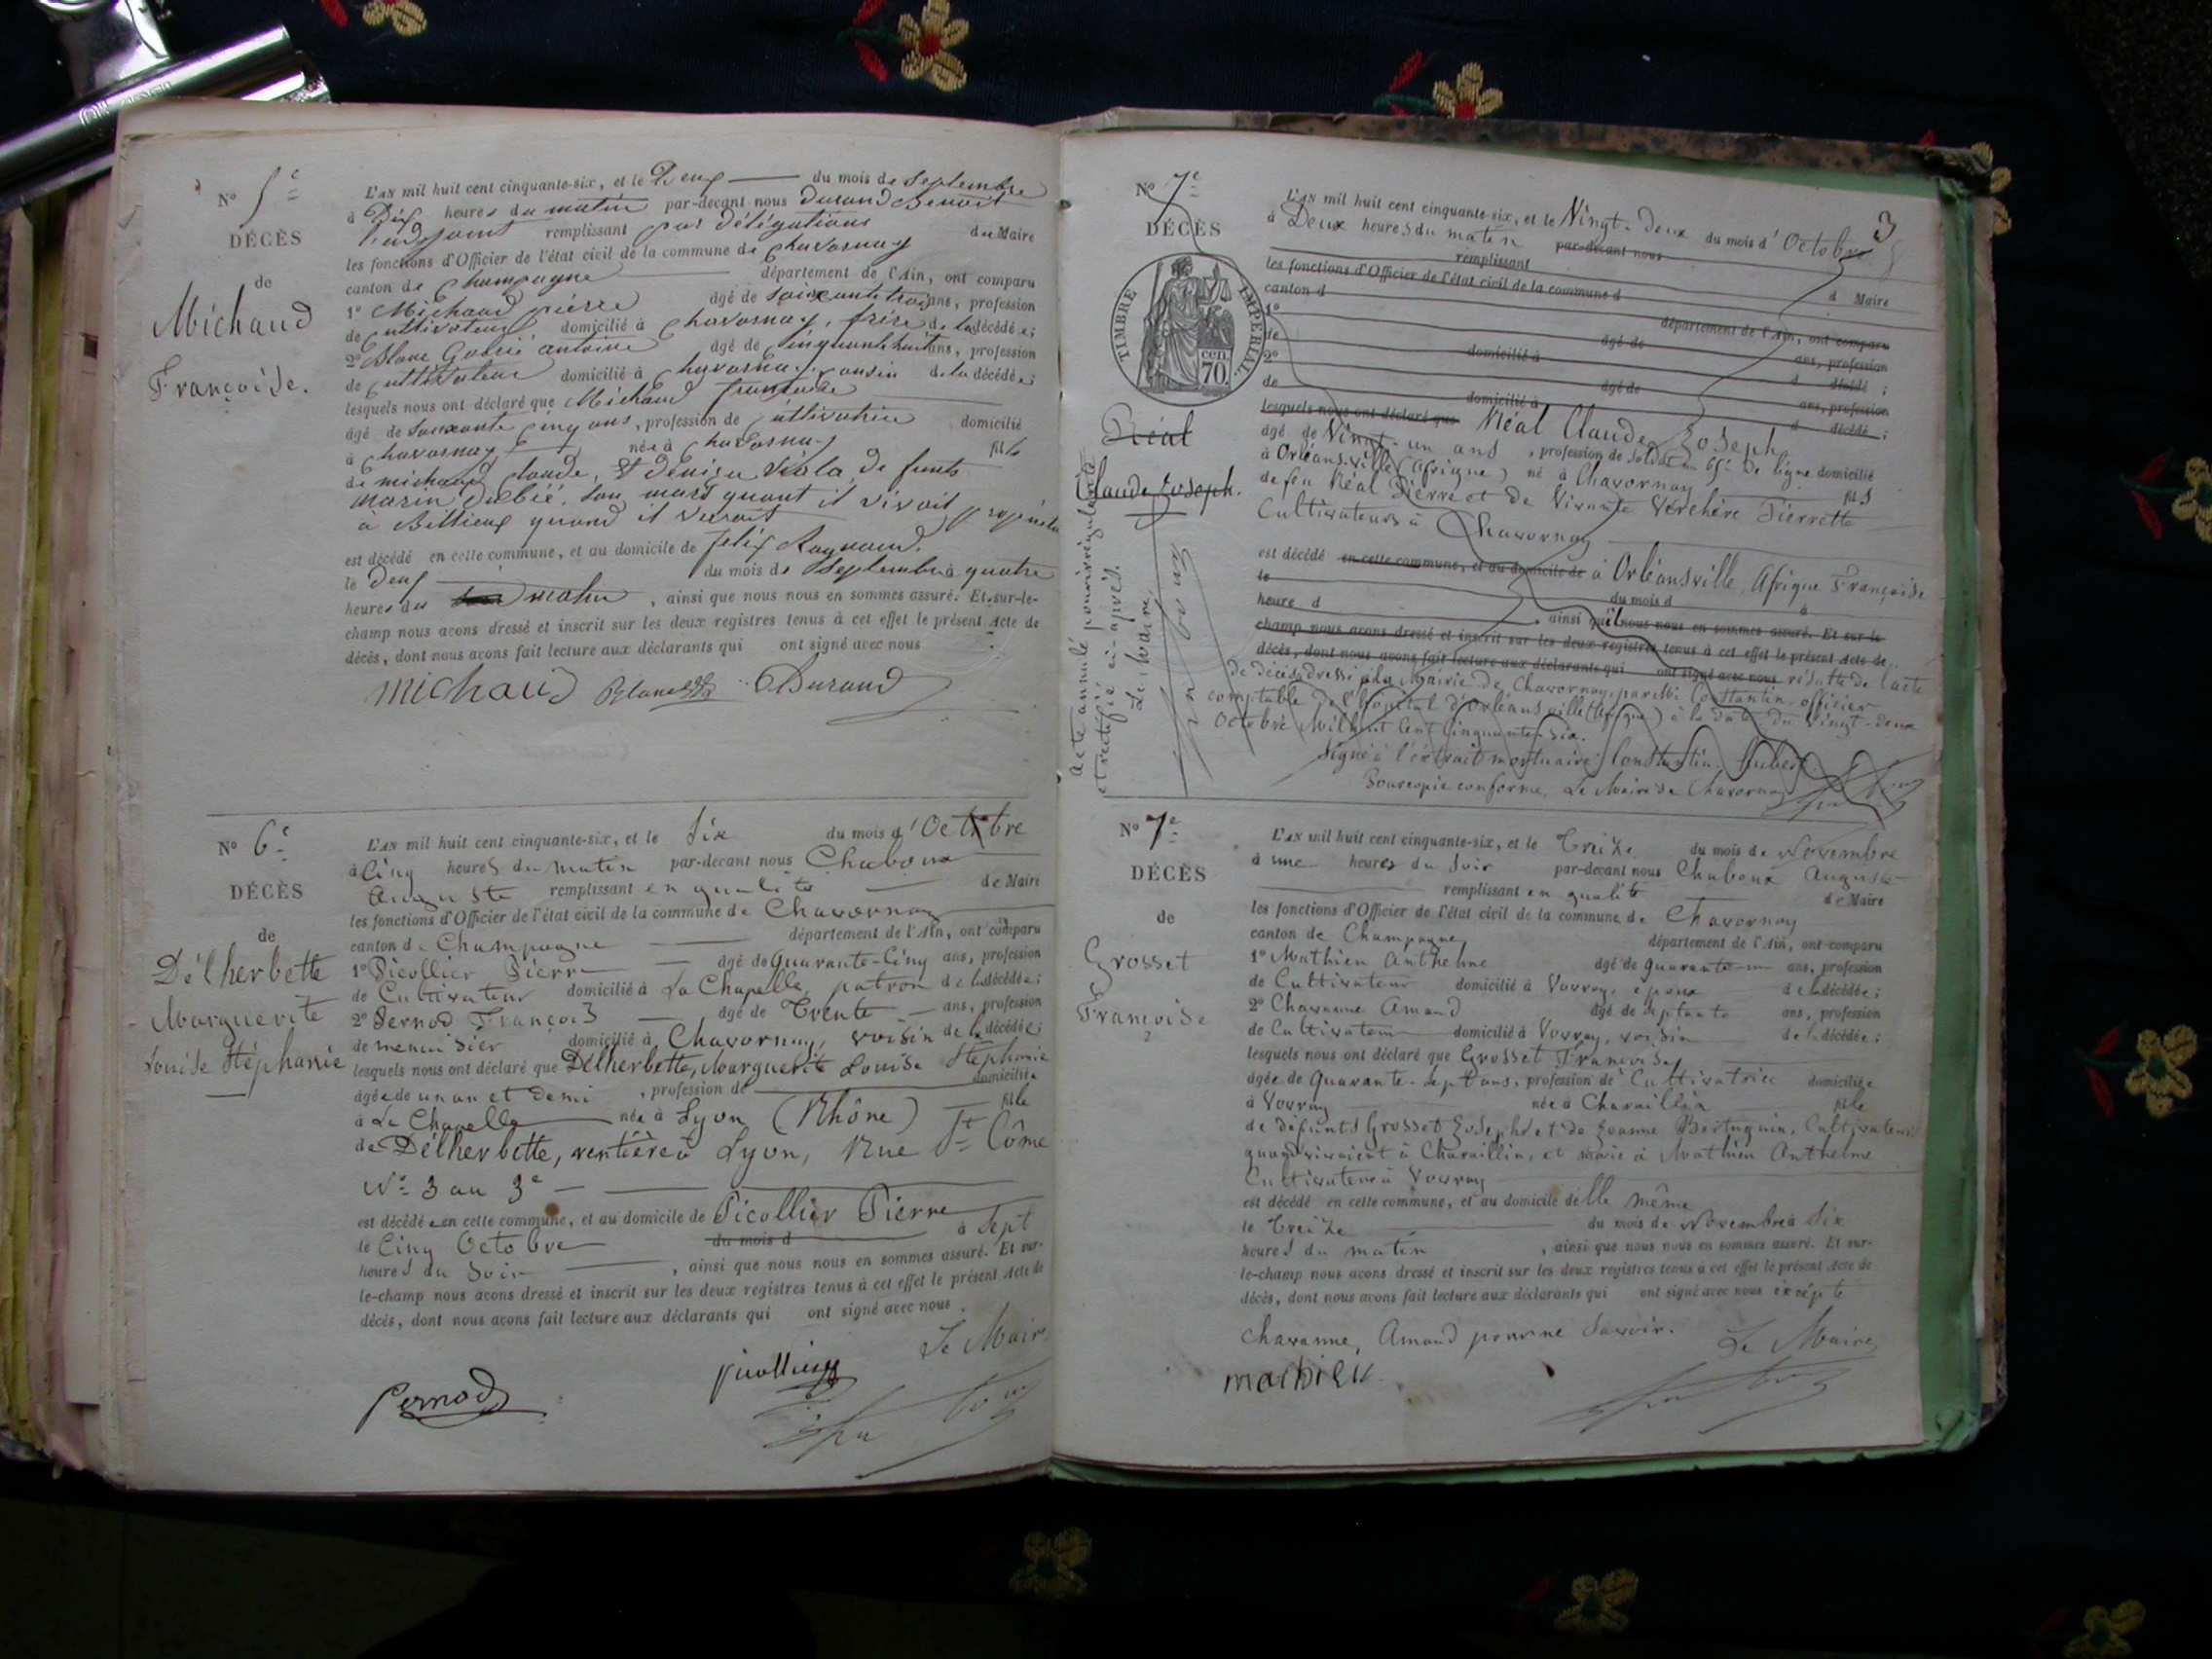 No 5e
DÉCÈS
de
Michaud
Françoise.
L'AN mil huit cent cinquante-six, et le Deux du mois de Septembre
à Dix heures du matin par-devant nous durand Benoit
l'adjoint remplissant par délégations du Maire
les fonctions d'Officier de l'état civil de la commune de Chavornay
canton de Champagne département de l'Ain, ont comparu
1o Michaud pierre âgé de soixante trois ans, profession
de Cultivateur domicilié à Chavornay, frère de la décédée;
2o Blanc antoine âgé de Cinquante huit ans, profession
de Cultivateur domicilié à Chavornay, cousin de la décédée;
lesquels nous ont déclaré que Michaud
âgé de Soixante Cinq ans, profession de Cultivatrice domicilié
à Chavornay née à Chavornay fille
de michaud Claude, Et
son mari quant il vivoit
à quand il
est décédé en cette commune, et au domicile de felix
le deux du mois de Septembre à quatre
heures du matin, ainsi que nous nous en sommes assuré. Et sur-le-
champ nous avons dressé et inscrit sur les deux registres tenus à cet effet le présent Acte de
décès, dont nous avons fait lecture aux déclarants qui ont signé avec nous
michaud Blanc Durand
No 6e
DÉCÈS
de
Délherbette
Marguerite
Louise Stéphanie
L'AN mil huit cent cinquante-six, et le Six du mois d'Octobre
à Cinq heures du matin par-devant nous Chaboux
Auguste remplissant en qualité de Maire
les fonctions d'Officier de l'état civil de la commune de Chavornay
canton de Champagne département de l'Ain, ont comparu
1o Picollier Pierre âgé de Quarante-Cinq ans, profession
de Cultivateur domicilié à La Chapelle, patron de la décédée;
2o Pernod François âgé de Trente ans, profession
de menuisier domicilié à Chavornay, voisin de la décédée;
lesquels nous ont déclaré que Délherbette, Marguerite Louise Stéphanie
âgée de un an et demi, profession de domiciliée
à La Chapelle née à Lyon (Rhône) fille
de Délherbette, rentière à Lyon, Rue St Côme
No 3 au 3e
est décédée en cette commune, et au domicile de Picollier Pierre
le Cinq Octobre du mois d à Sept
heures du Soir, ainsi que nous nous en sommes assuré. Et sur-
le-champ nous avons dressé et inscrit sur les deux registres tenus à cet effet le présent Acte de
décès, dont nous avons fait lecture aux déclarants qui ont signé avec nous.
Le Maire
Pernod picollier
3
No 7e
DÉCÈS
TIMBRE IMPERIAL
cen. 70.
Réal
Claude Joseph.
Acte annulé pour irrégularité
et rectifié ci-après.
Le Maire
L'AN mil huit cent cinquante-six, et le Vingt-deux du mois d'Octobre
à Deux heures du matin par-devant nous
remplissant d Maire
les fonctions d'Officier de l'état civil de la commune d
canton d département de l'Ain, ont comparu
1o âgé de ans, profession
de domicilié à d décédé ;
2o âgé de ans, profession
de domicilié à d décédé ;
lesquels nous ont déclaré que Réal Claude Joseph
âgé de Vingt-un ans, profession de Soldat au 65e de ligne domicilié
à Orléansville (Afrique) né à Chavornay fils
de feu Réal Pierre et de Vivante Verchère Pierrette
Cultivateurs à Chavornay
est décédé en cette commune, et au domicile de à Orléansville, Afrique Française
le du mois d à
heure d, ainsi qu'il nous nous en sommes assuré. Et sur-le
champ nous avons dressé et inscrit sur les deux registres tenus à cet effet le présent Acte de
décès, dont nous avons fait lecture aux déclarants qui ont signé avec nous résulte de l'acte
de décès dressé à la Mairie de Chavornay, par Mr Constantin officier
comptable de l'Hôpital d'Orléansville (Afrique) à la date du Vingt-deux
Octobre Mil huit Cent Cinquante-Six.
Signé à l'extrait mortuaire: Constantin. Hubert
Pour copie conforme, Le Maire de Chavornay
No 7e
DÉCÈS
de
Grosset
Françoise
L'AN mil huit cent cinquante-six, et le Treize du mois de Novembre
à une heures du Soir par-devant nous Chaboux Auguste
remplissant en qualité de Maire
les fonctions d'Officier de l'état civil de la commune de Chavornay
canton de Champagne, département de l'Ain, ont comparu
1o Mathieu Anthelme âgé de quarante-un ans, profession
de Cultivateur domicilié à Vovray, époux de la décédée;
2o Chavanne Amand âgé de Septante ans, profession
de Cultivateur domicilié à Vovray, voisin de la décédée;
lesquels nous ont déclaré que Grosset Françoise
âgée de Quarante-Sept ans, profession de Cultivatrice domiciliée
à Vovray née à Charaillin fille
de défunts Grosset Joseph et de Jeanne Cultivateurs
quand vivaient à Charaillin, et mariée à Mathieu Anthelme
Cultivateur à Vovray
est décédé en cette commune, et au domicile d'elle même
le Treize du mois de Novembre à Six
heures du matin, ainsi que nous nous en sommes assuré. Et sur-
le-champ nous avons dressé et inscrit sur les deux registres tenus à cet effet le présent Acte de
décès, dont nous avons fait lecture aux déclarants qui ont signé avec nous excepté
Chavanne, Amand pour ne Savoir. Le Maire
mathieu